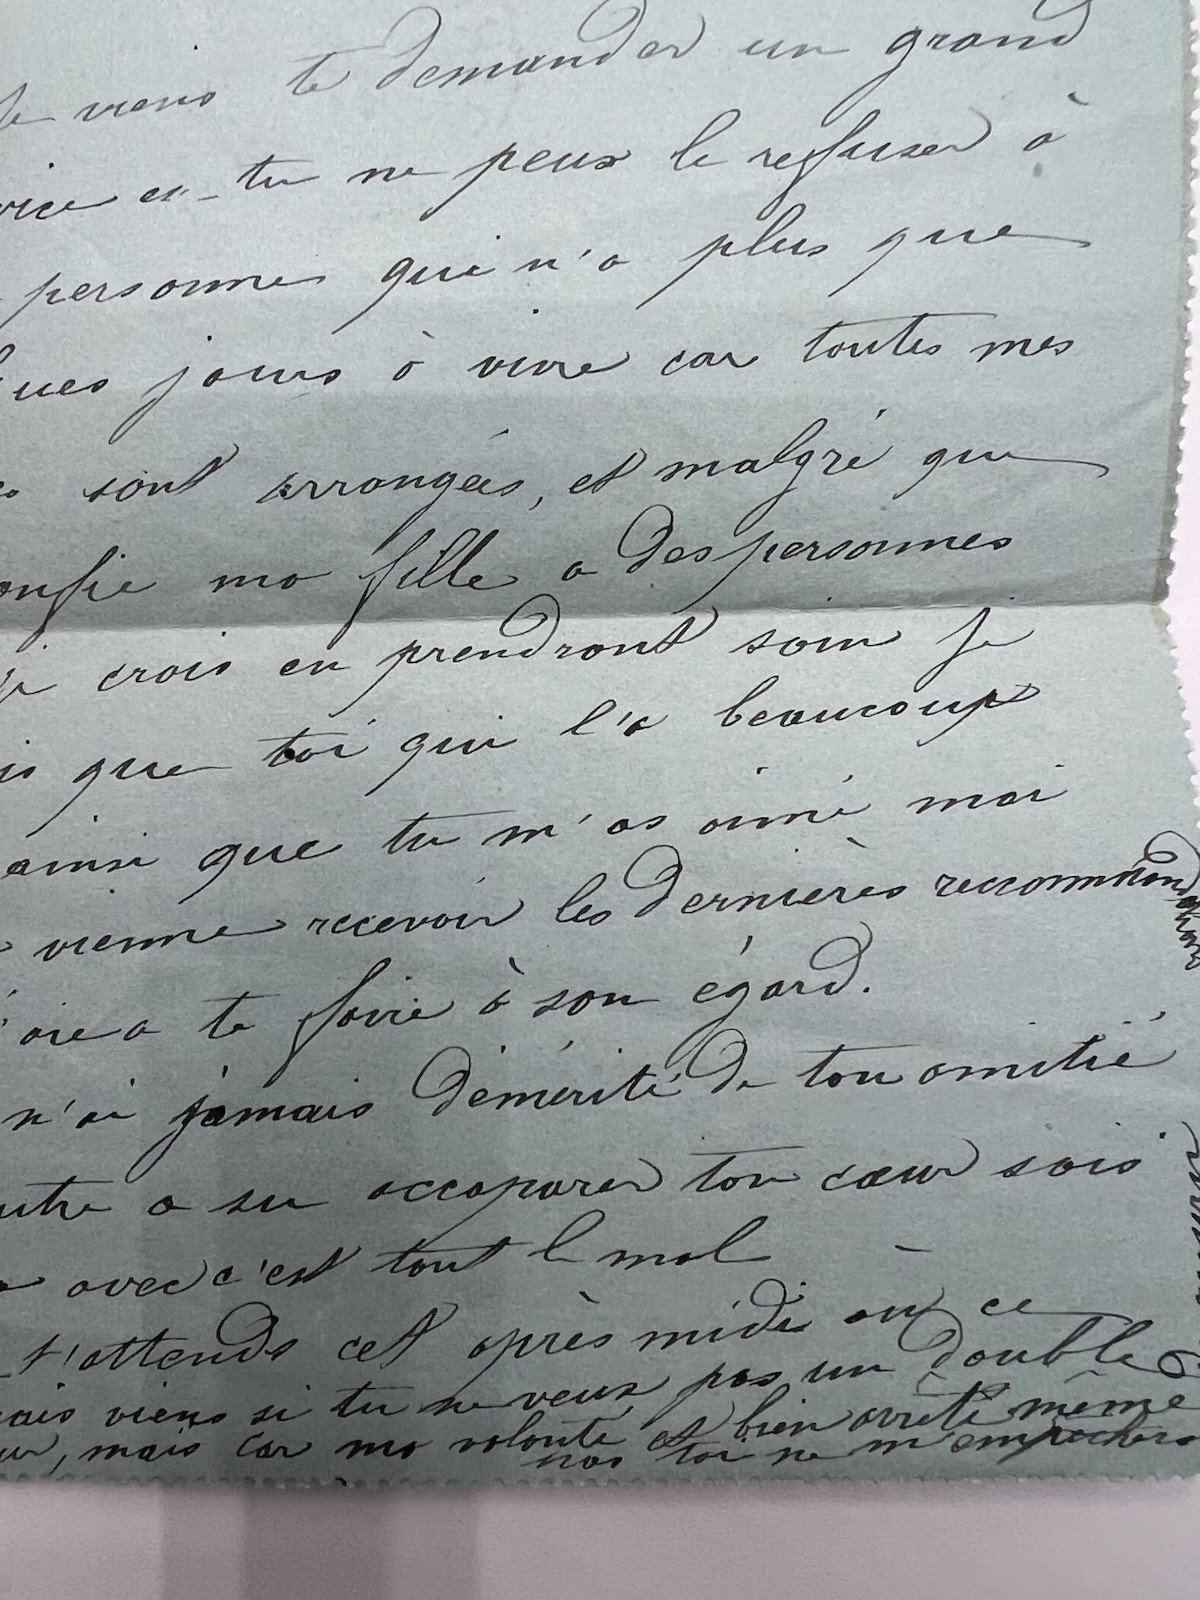 Je viens te demander un grand
vice et tu ne peux le refuser à
personne qui n'a plus que
ques jours à vivre car toutes mes
sont arrangées, et malgré que
onfie ma fille a des personnes
je crois en prendront soin je
is que toi qui l'a beaucoup
ainsi que tu m'as aimé moi
vienne recevoir les dernières recommandations
'aie a te faire à son égard.
n'ai jamais démérité de ton amitié
utre a su accaparer ton cœur sois
avec c'est tout le mal
t'attends cet après midi ou ce
ais viens si tu ne veux pas un double
eur, mais car ma volonté est bien arrêté même
toi ne m'empêchera